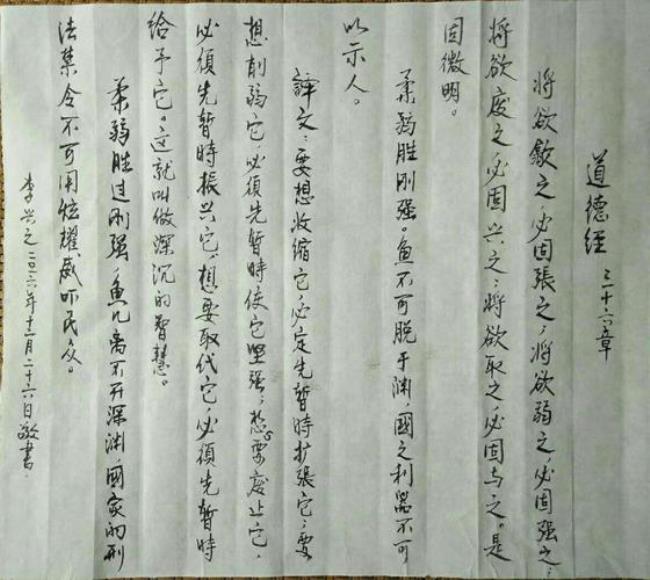 道德经 三十六章
将欲歙之,必固張之;将欲弱之,必固强之;
将欲废之,必固兴之;将欲取之,必固与之。是
固微明。
柔弱胜刚强。鱼不可脱于渊,國之利器不可
以示人。
譯文:要想收缩它,必定先暂時扩張它;要
想削弱它,必須先暂時使它堅强;想要废止它,
必須先暂時振兴它;想要取代它,必須先暂時
给予它。这就叫做深沉的智慧。
柔弱胜过刚强,魚儿离不开深渊,國家的刑
法禁令不可用炫耀,威吓民众。
李兴之二〇一六年十二月二十六日敬書.